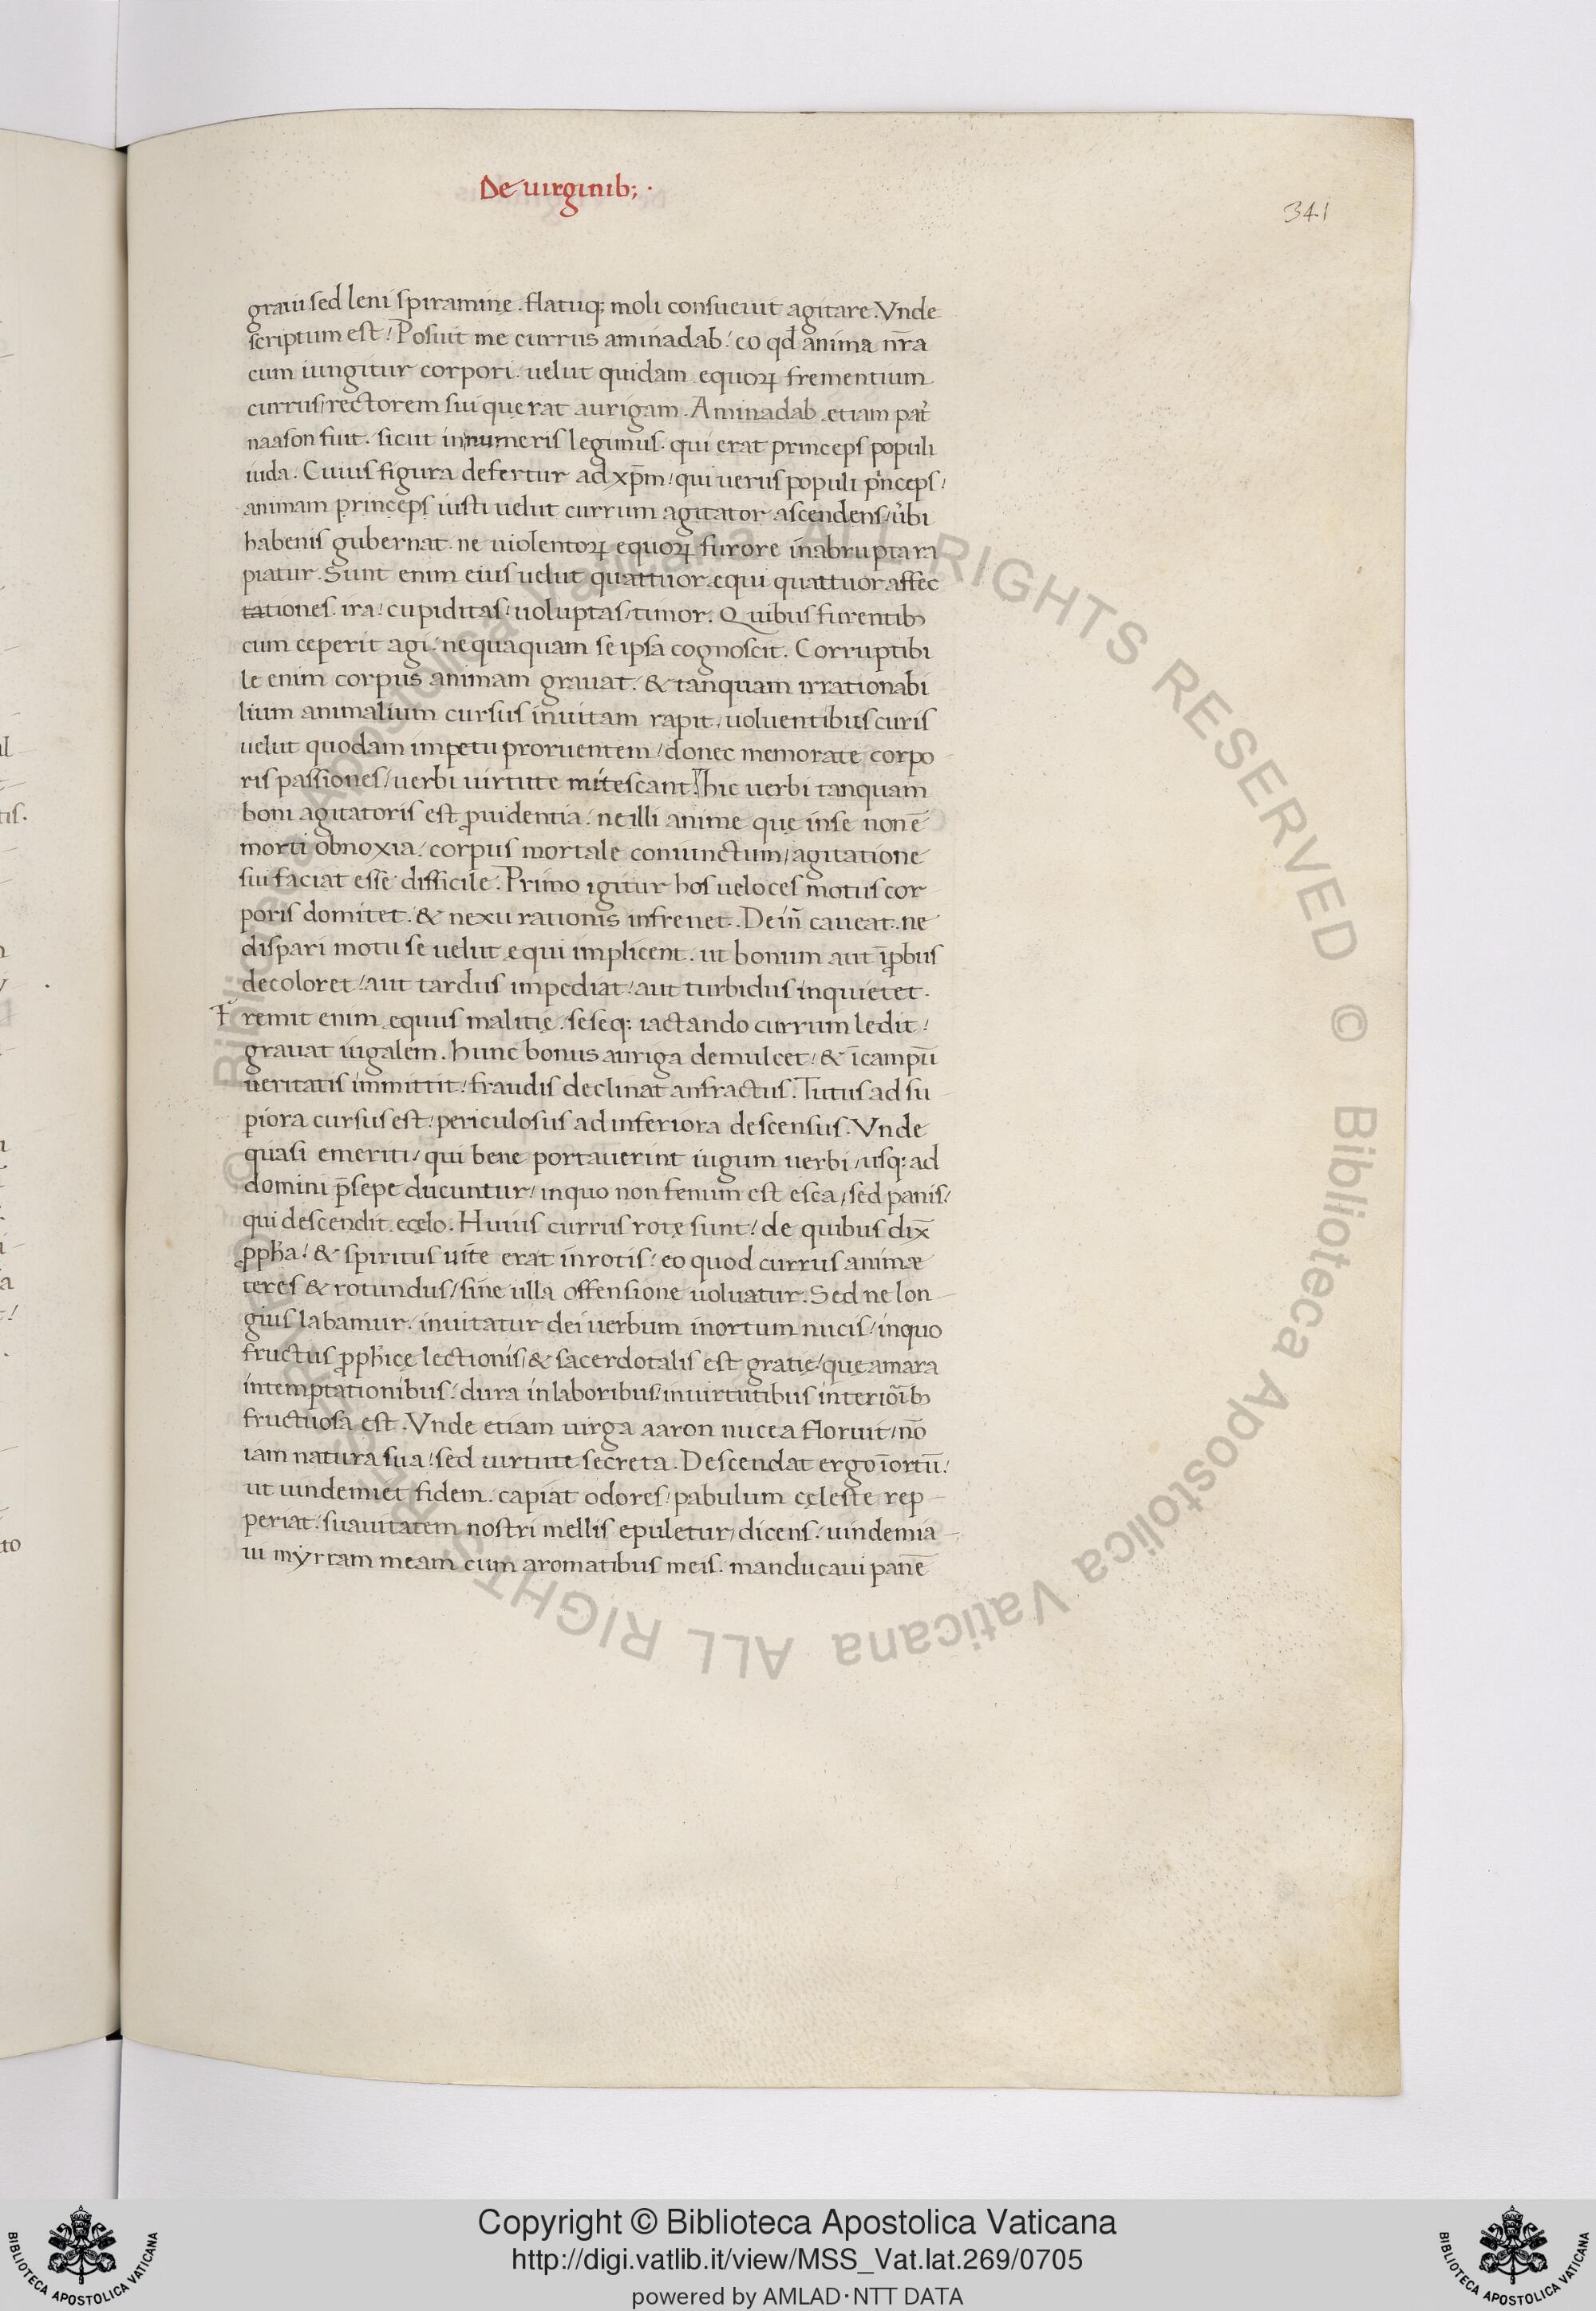 De uirginib; .
341
graui sed leni spiramine. flatuq; moli consueuit agitare. Vnde
scriptum est! Posuit me currus aminadab! eo qđ anima nr̄a
cum iungitur corpori. uelut quidam equoꝝ frementium
currus/rectorem sui querat aurigam. Aminadab etiam pat̓
naason fuit. sicut in numeris legimus. qui erat princeps populi
iuda. Cuius figura defertur ad xp̄m/qui uerus populi pͥnceps/
animam princeps iusti uelut currum agitator ascendens/uͬbi
habenis gubernat. ne uiolentoꝝ equoꝝ furore in abrupta ra
piatur. Sunt enim eius uelut quattuor equi quattuor affec
tationes. ira! cupiditas/uoluptas/timor. Quibus furentib;
cum ceperit agi. nequaquam se ipsa cognoscit. Corruptibi
le enim corpus animam grauat. & tanquam irrationabi
lium animalium cursus inuitam rapit/uoluentibus curis
uelut quodam impetu proruentem/donec memorate corpo
ris passiones/uerbi uirtute mitescant. hic uerbi tanquam
boni agitatoris est ꝓuidentia. ne illi anime quę in se non ē
morti obnoxia! corpus mortale coniunctum/agitatione
sui faciat esse difficile. Primo igitur hos ueloces motus cor
poris domitet. & nexu rationis infrenet. Dein̄ caueat. ne
dispari motu se uelut equi implicent. ut bonum aut īꝓbus
decoloret! aut tardus impediat! aut turbidus inquietet.
Fremit enim equus malitię. seseq; iactando currum ledit!
grauat iugalem. hunc bonus auriga demulcet! & ī campū
ueritatis immittit! fraudis declinat anfractus. Tutus ad su
ꝑiora cursus est! periculosus ad inferiora descensus. Vnde
quasi emeriti/qui bene portauerint iugum uerbi/usq; ad
domini p̄sepe ducuntur/in quo non fenum est esca/sed panis/
qui descendit e cęlo. Huius currus rotę sunt! de quibus dix̄
ꝓpħa! & spiritus uite erat in rotis! eo quod currus animæ
teres & rotundus/sine ulla offensione uoluatur. Sed ne lon
gius labamur. inuitatur dei uerbum in ortum nucis/in quo
fructus ꝓpħicę lectionis/& sacerdotalis est gratię/quę amara
in temptationibus! dura in laboribus! in uirtutibus interiorib;
fructuosa est. Vnde etiam uirga aaron nucea floruit/nō
iam natura sua! sed uirtute secreta. Descendat ergo ī ortū!
ut uindemiet fidem. capiat odores! pabulum cęleste rep
periat. suauitatem nostri mellis epuletur/dicens. uindemia
ui myrram meam cum aromatibus meis. manducaui panē
Copyright © Biblioteca Apostolica Vaticana
http://digi.vatlib.it/view/MSS_Vat.lat.269/0705
powered by AMLAD·NTT DATA